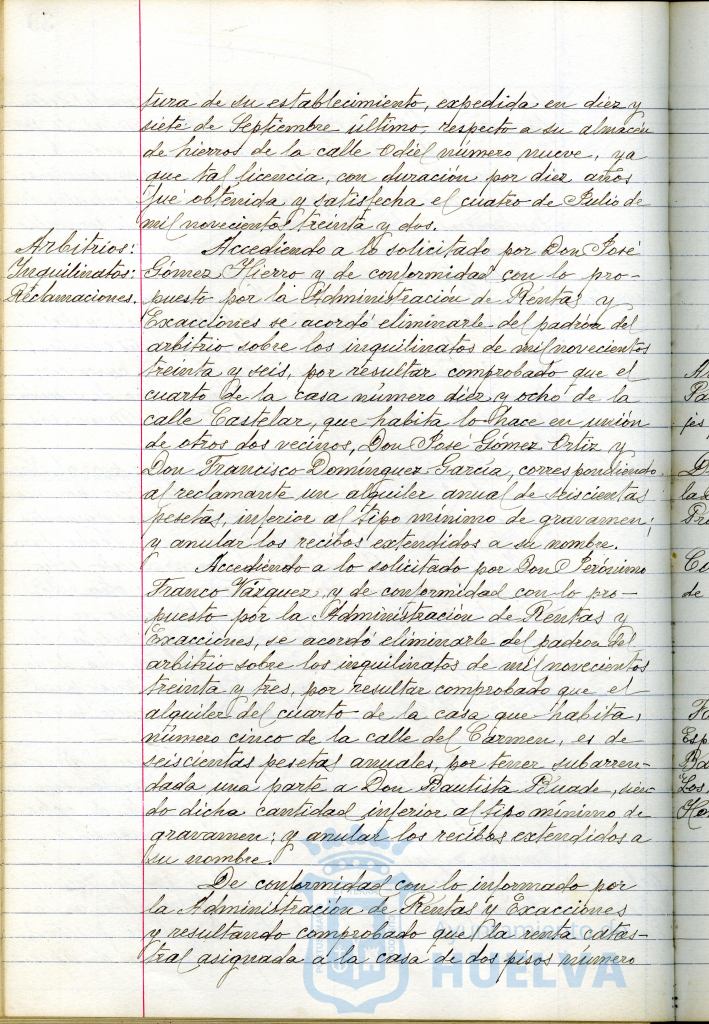 tura de su establecimiento, expedida en diez y
siete de Septiembre último, respecto a su almacén
de hierros de la calle Odiel número nueve, ya
que tal licencia, con duración por diez años
fué obtenida y satisfecha el cuatro de Julio de
mil novecientos treinta y dos.
Arbitrios:
Inquilinatos:
Reclamaciones.
Accediendo a lo solicitado por Don José
Gómez Hierro y de conformidad con lo pro-
puesto por la Administración de Rentas y
Exacciones se acordó eliminarle del padrón del
arbitrio sobre los inquilinatos de mil novecientos
treinta y seis, por resultar comprobado que el
cuarto de la casa número diez y ocho de la
calle Castelar, que habita lo hace en unión
de otros dos vecinos, Don José Gómez Ortiz y
Don Francisco Domínguez García, correspondiendo
al reclamante un alquiler anual de seiscientas
pesetas, inferior al tipo mínimo de gravamen;
y anular los recibos extendidos a su nombre.
Accediendo a lo solicitado por Don Jerónimo
Franco Vázquez, y de conformidad con lo pro-
puesto por la Administración de Rentas y
Exacciones, se acordó eliminarle del padrón del
arbitrio sobre los inquilinatos de mil novecientos
treinta y tres, por resultar comprobado que el
alquiler del cuarto de la casa que habita,
número cinco de la calle del Carmen, es de
seiscientas pesetas anuales, por tener subarren-
dada una parte a Don Bautista Buade, sien-
do dicha cantidad inferior al tipo mínimo de
gravamen; y anular los recibos extendidos a
su nombre.
De conformidad con lo informado por
la Administración de Rentas y Exacciones
y resultando comprobado que la renta catas-
tral asignada a la casa de dos pisos número
HUELVA